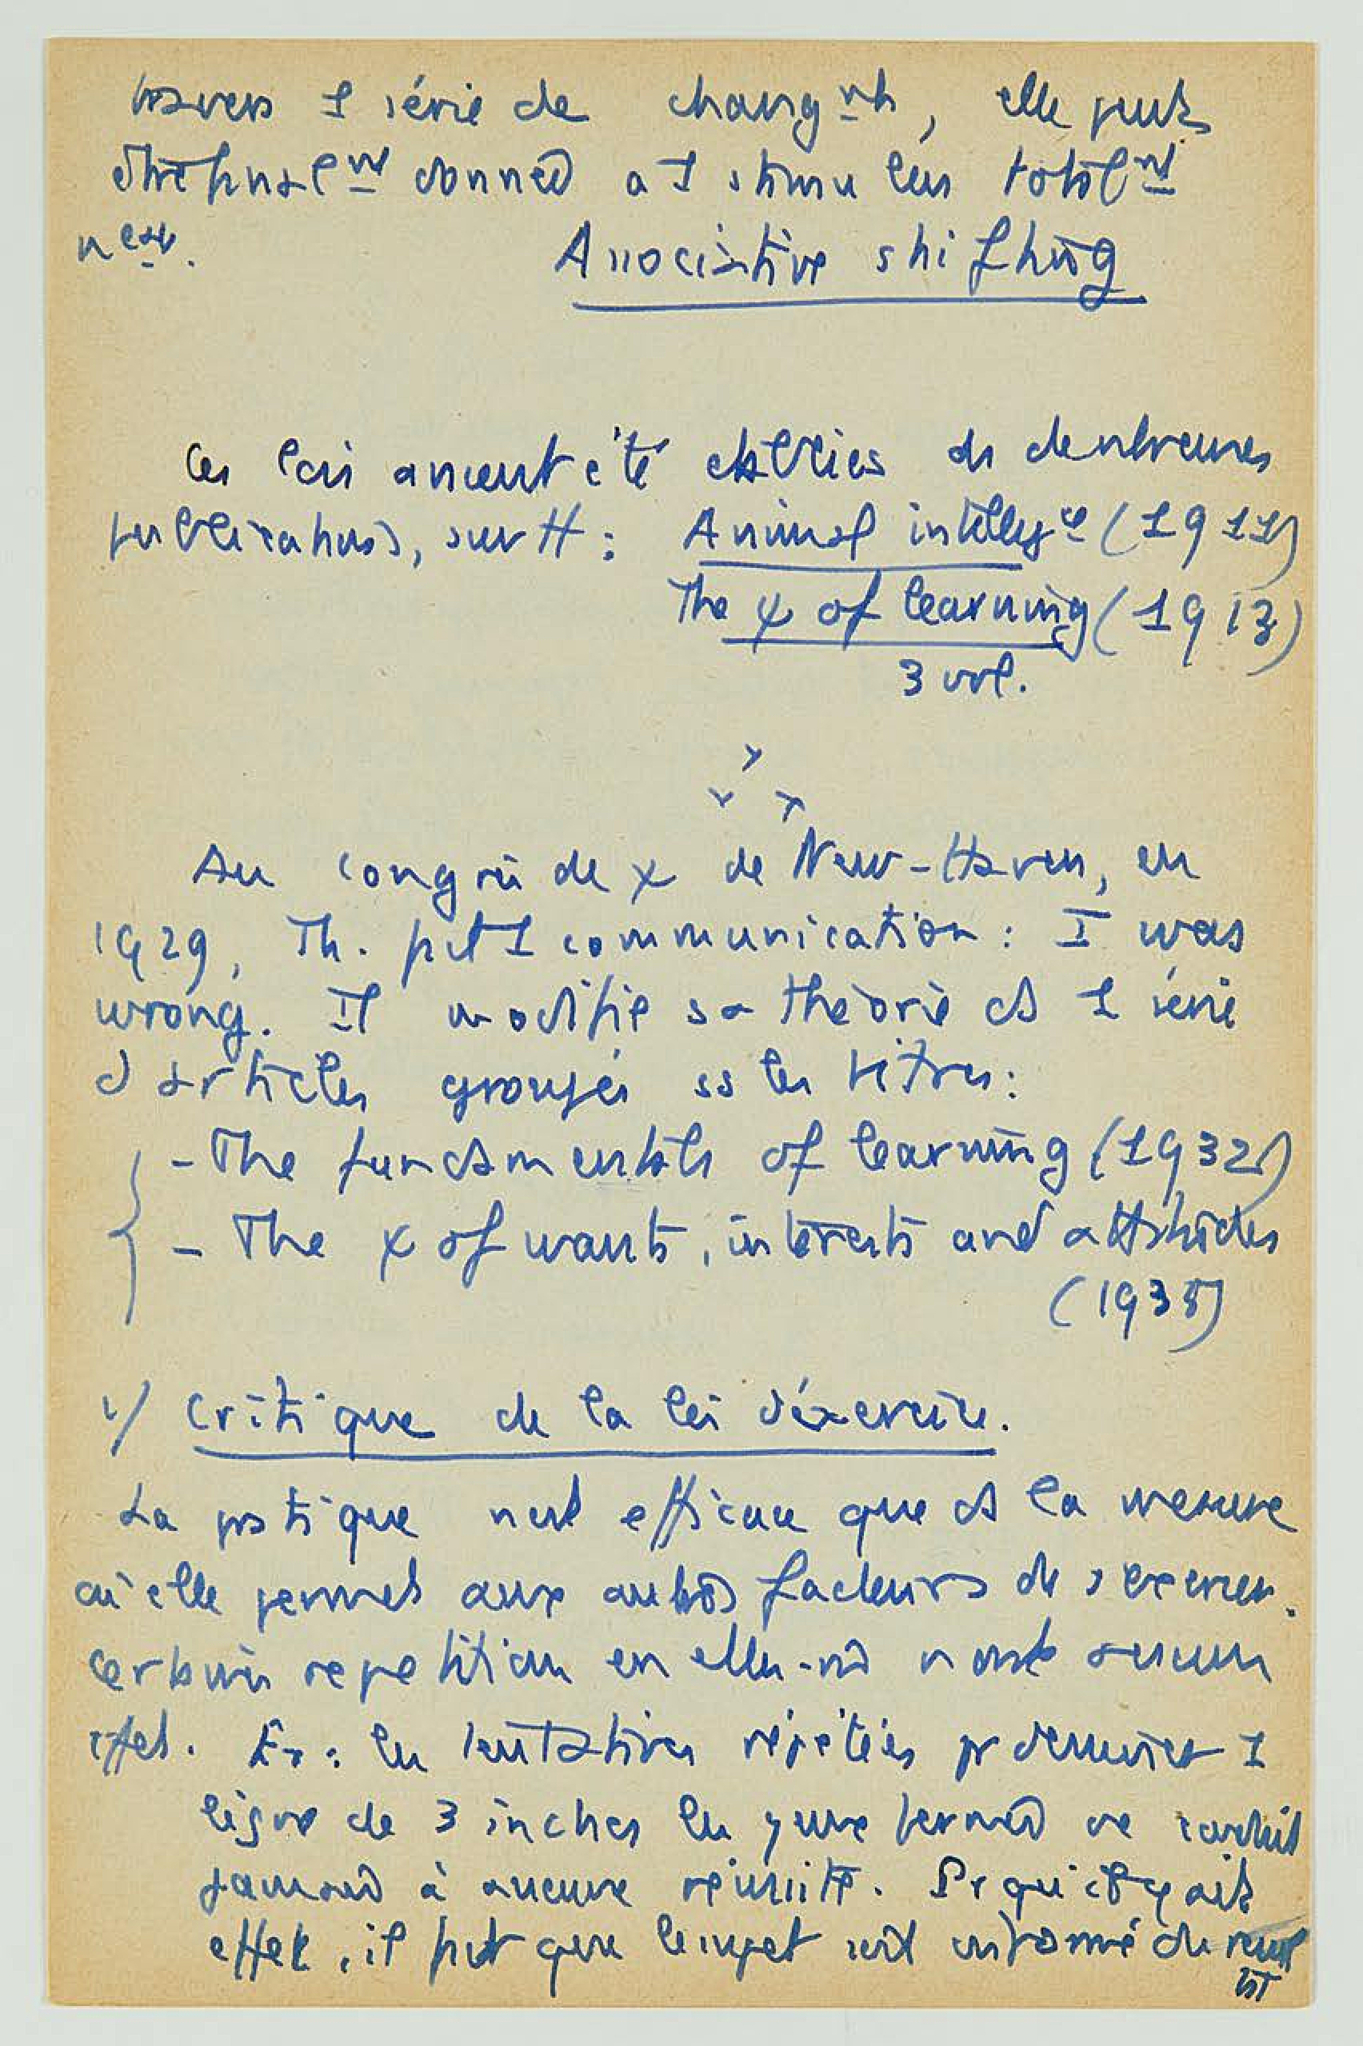 travers 1 série de changmts, elle peut
être finalmt donnée à 1 stimulus totalmt
nveau.
Associative shifting
Ces lois avaient été établies ds de nbreuses
publications, surtt : Animal intellgce (1911)
The ψ of learning (1913)
3 vol.
Au congrès de ψ de New-Haven, en
1929, Th. fit 1 communication : I was
wrong. Il modifie sa théorie ds 1 série
d'articles groupés ss les titres :
- The fundamentals of learning (1932)
- The ψ of wants, interests and attitudes
(1935)
1/ Critique de la loi d'exercice.
La pratique n'est efficace que ds la mesure
où elle permet aux autres facteurs de s'exercer.
répétition en elle-mê n'a aucun
effet. Ex : les tentatives répétées pr dessiner 1
ligne de 3 inches les yeux fermés ne conduit
jamais à aucune réussite. Pr qu'il y ait
effet, il faut que le sujet soit informé du résult